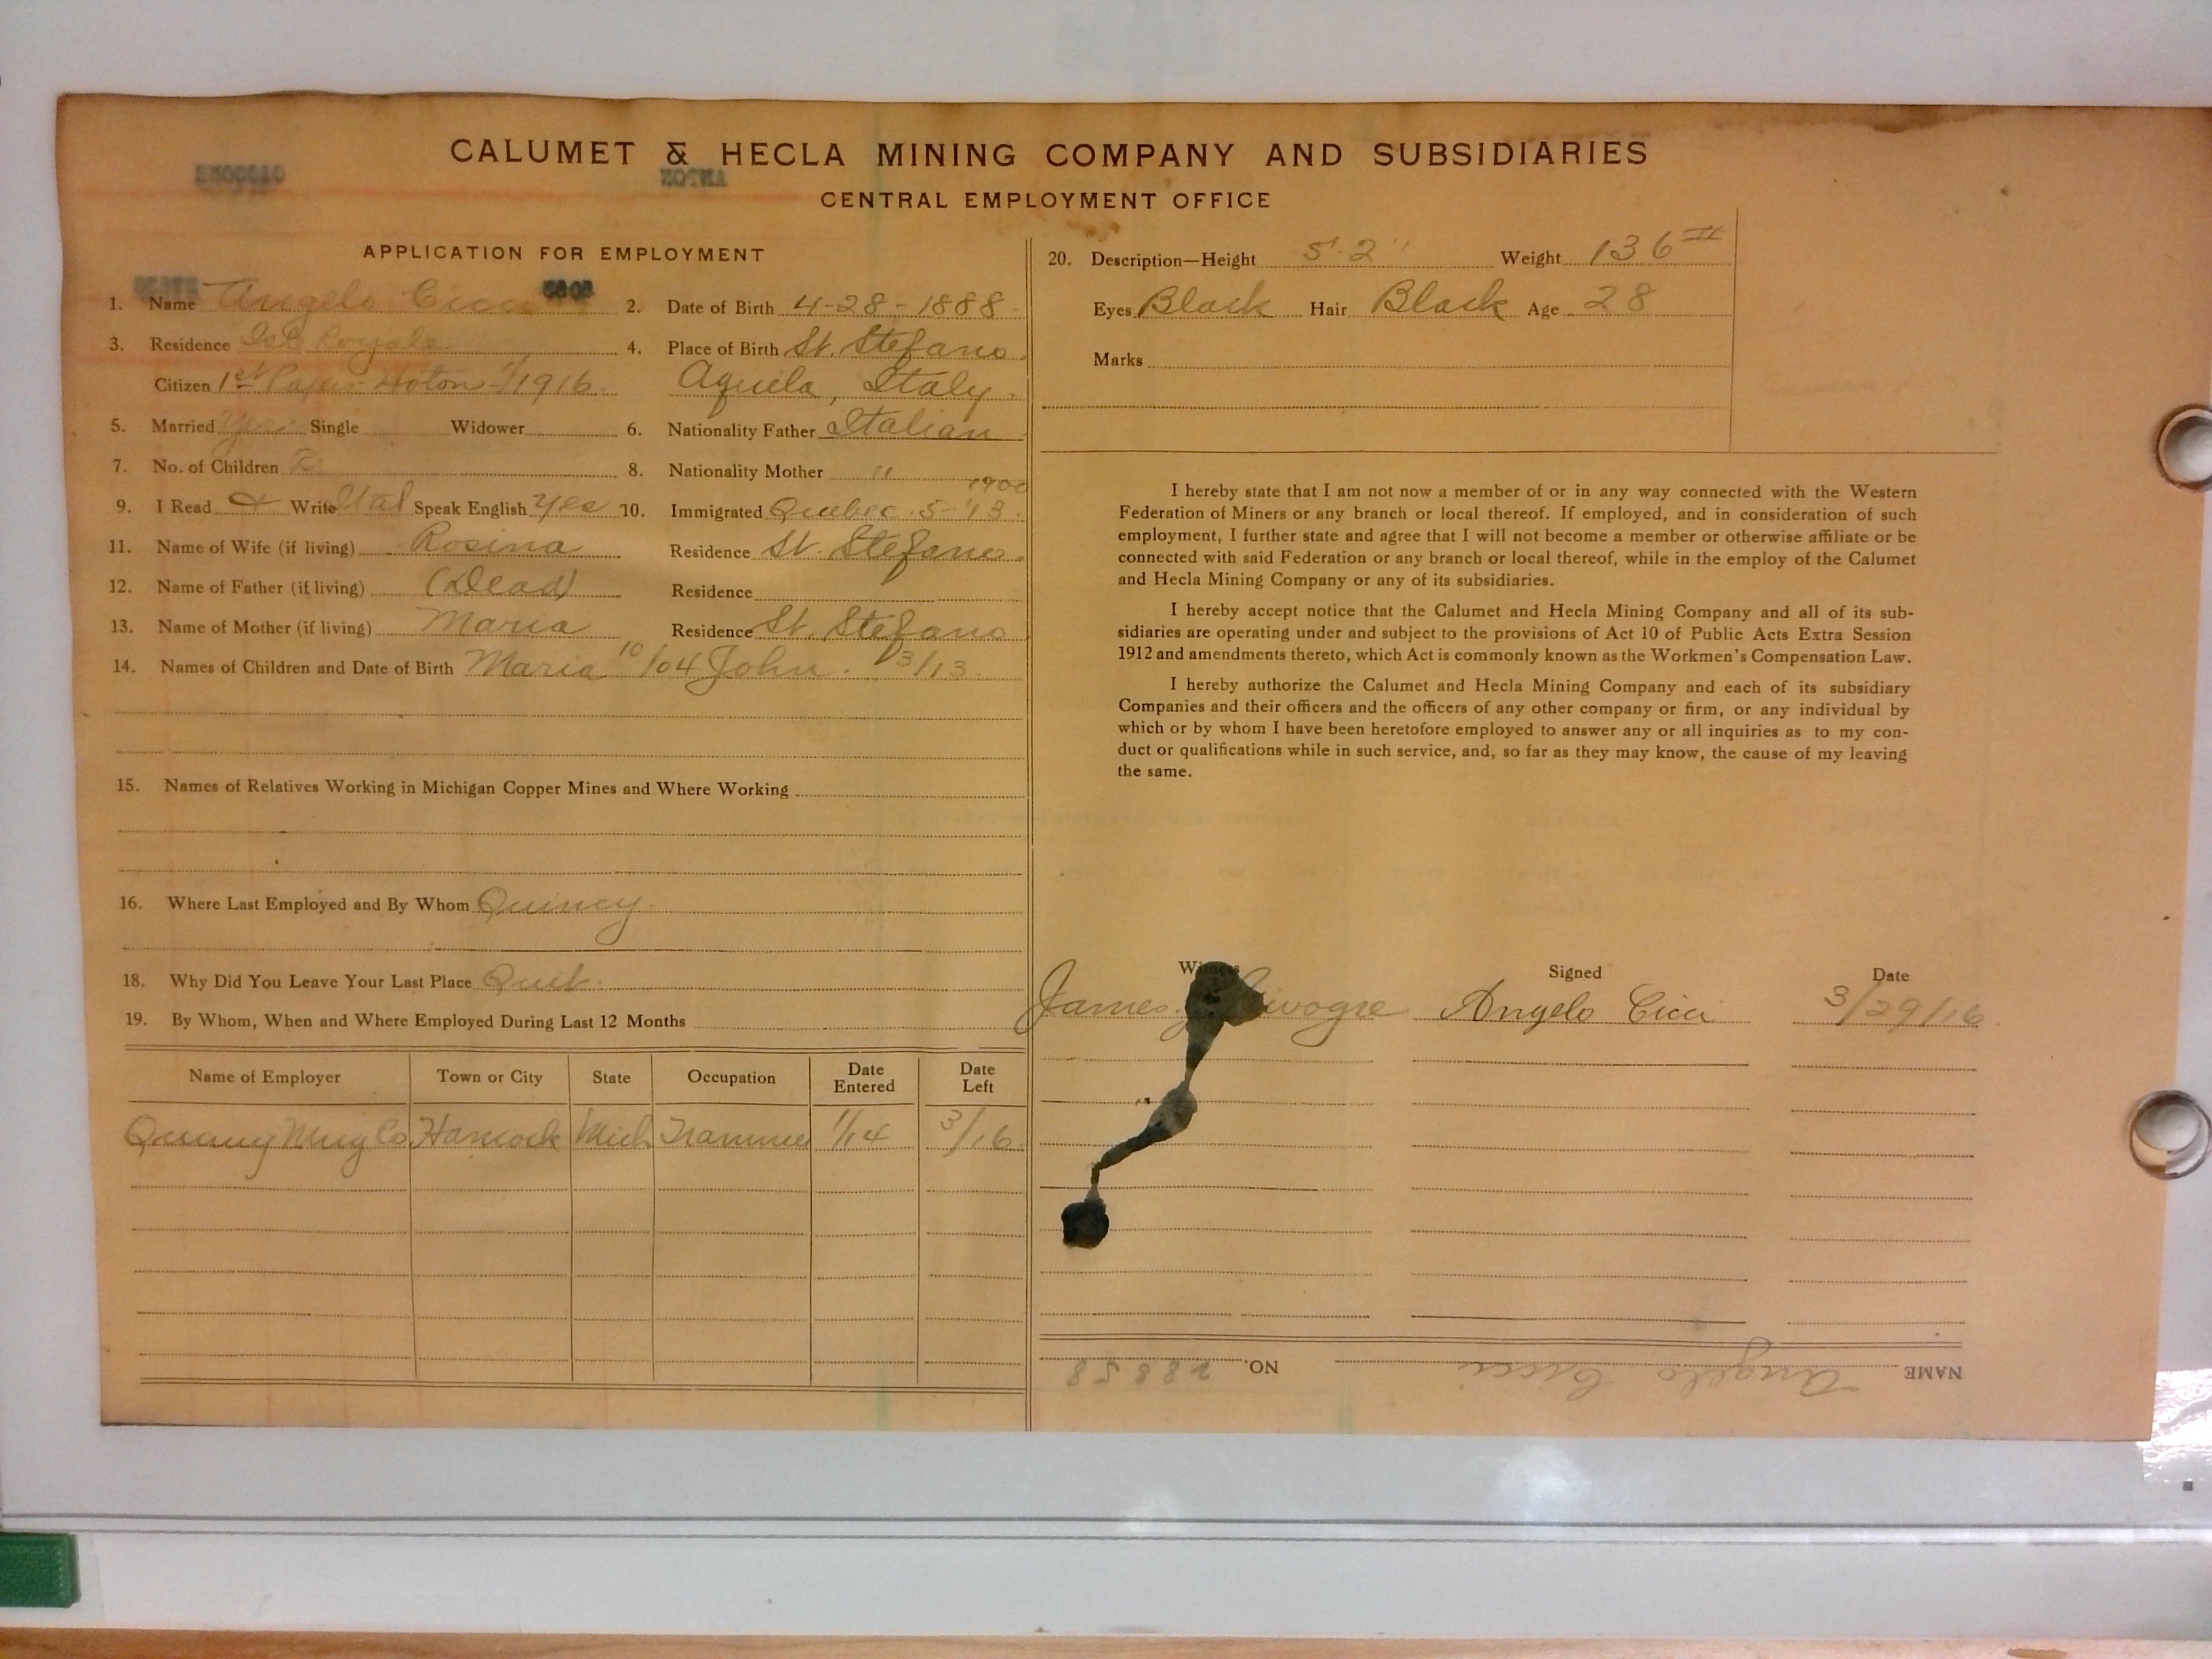 CALUMET & HECLA MINING COMPANY AND SUBSIDIARIES
CENTRAL EMPLOYMENT OFFICE
APPLICATION FOR EMPLOYMENT
1. Name Angelo Cicci 2. Date of Birth 4-28-1888
3. Residence Isle Royale 4. Place of Birth St. Stefano
Citizen 1st Papers Hoton 1/1916 Aquela, Italy
5. Married Yes Single Widower 6. Nationality Father Italian
7. No. of Children 2 8. Nationality Mother "
1900
9. I Read & Write Ital Speak English yes 10. Immigrated Quebec 5-'13
11. Name of Wife (if living) Rosina Residence St. Stefano
12. Name of Father (if living) (Dead) Residence
13. Name of Mother (if living) Maria Residence St. Stefano
14. Names of Children and Date of Birth Maria 10/04 John. 3/13
15. Names of Relatives Working in Michigan Copper Mines and Where Working
16. Where Last Employed and By Whom Quincy.
18. Why Did You Leave Your Last Place Quit.
19. By Whom, When and Where Employed During Last 12 Months
Name of Employer Town or City State Occupation Date Entered Date Left
Quincy Mng Co Hancock Mich Trammer 1/14 3/16
20. Description—Height 5' 2" Weight 136 #
Eyes Black Hair Black Age 28
Marks
I hereby state that I am not now a member of or in any way connected with the Western
Federation of Miners or any branch or local thereof. If employed, and in consideration of such
employment, I further state and agree that I will not become a member or otherwise affiliate or be
connected with said Federation or any branch or local thereof, while in the employ of the Calumet
and Hecla Mining Company or any of its subsidiaries.
I hereby accept notice that the Calumet and Hecla Mining Company and all of its sub-
sidiaries are operating under and subject to the provisions of Act 10 of Public Acts Extra Session
1912 and amendments thereto, which Act is commonly known as the Workmen's Compensation Law.
I hereby authorize the Calumet and Hecla Mining Company and each of its subsidiary
Companies and their officers and the officers of any other company or firm, or any individual by
which or by whom I have been heretofore employed to answer any or all inquiries as to my con-
duct or qualifications while in such service, and, so far as they may know, the cause of my leaving
the same.
Witness Signed Date
James Angelo Cicci 3/29/16
NAME Angelo Cicci NO. 28858